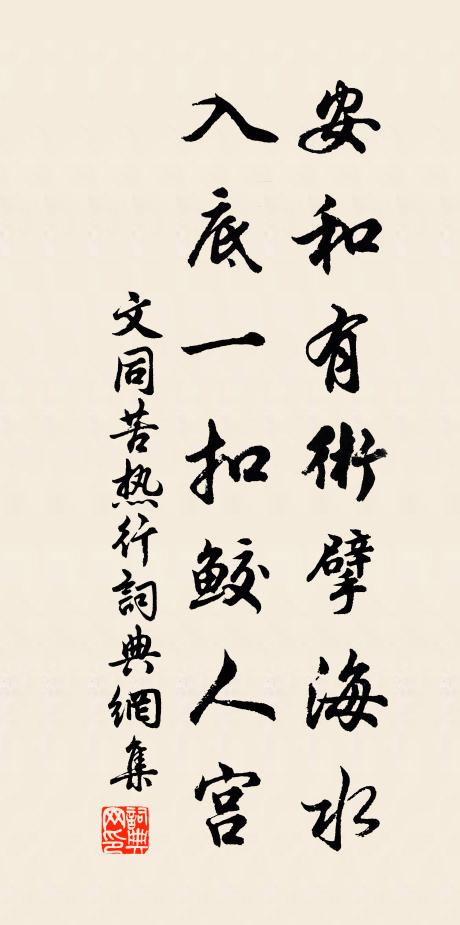 安和有術擘海水
入底一扣鮫人宮
文同苦热行詞典網集
詞典網印